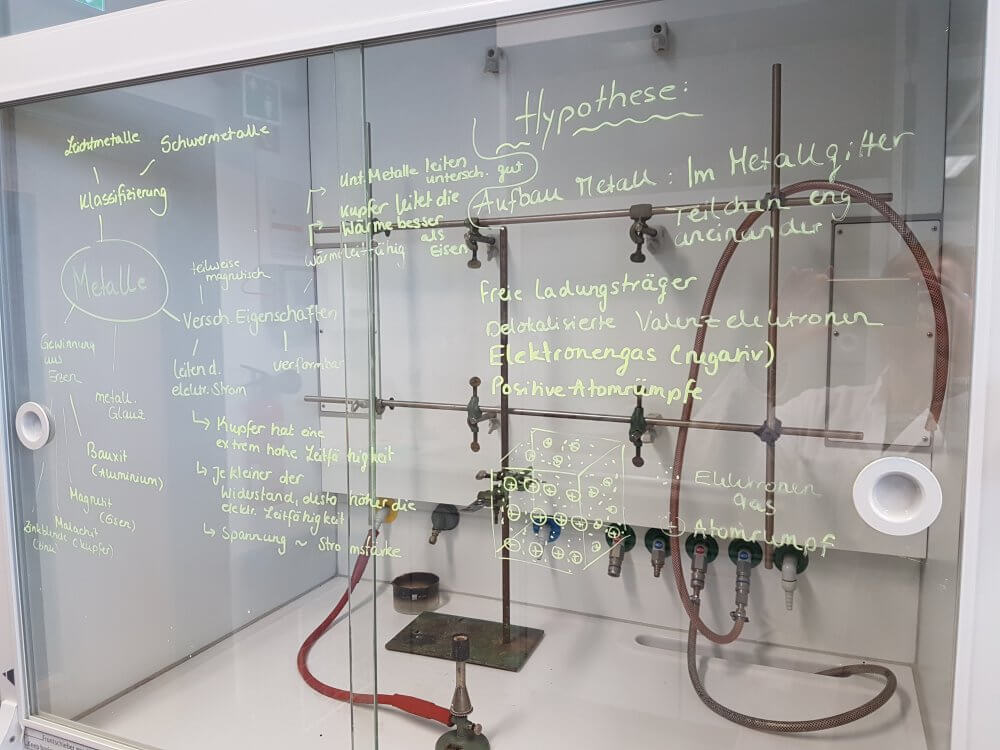 Leichtmetalle
Schwermetalle
Klassifizierung
Metalle
teilweise
magnetisch
Versch. Eigenschaften
Gewinnung
aus
Erzen
metall.
Glanz
leiten d.
elektr. Strom
verformbar
Bauxit
(Aluminium)
Magnetit
(Eisen)
Malachit
(Kupfer)
Zinkblende
↳ Kupfer hat eine
extrem hohe Leitfähigkeit
↳ Je kleiner der
Widerstand, desto höher die
elektr. Leitfähigkeit
↳ Spannung ~ Stromstärke
Unt. Metalle leiten
untersch. gut
Kupfer leitet die
Wärme besser
als
Eisen
wärmeleitfähig
Hypothese:
Aufbau Metall: Im Metallgitter
Teilchen eng
aneinander
Freie Ladungsträger
Delokalisierte Valenzelektronen
Elektronengas (negativ)
Positive Atomrümpfe
Elektronen
gas
⊕ Atomrümpf